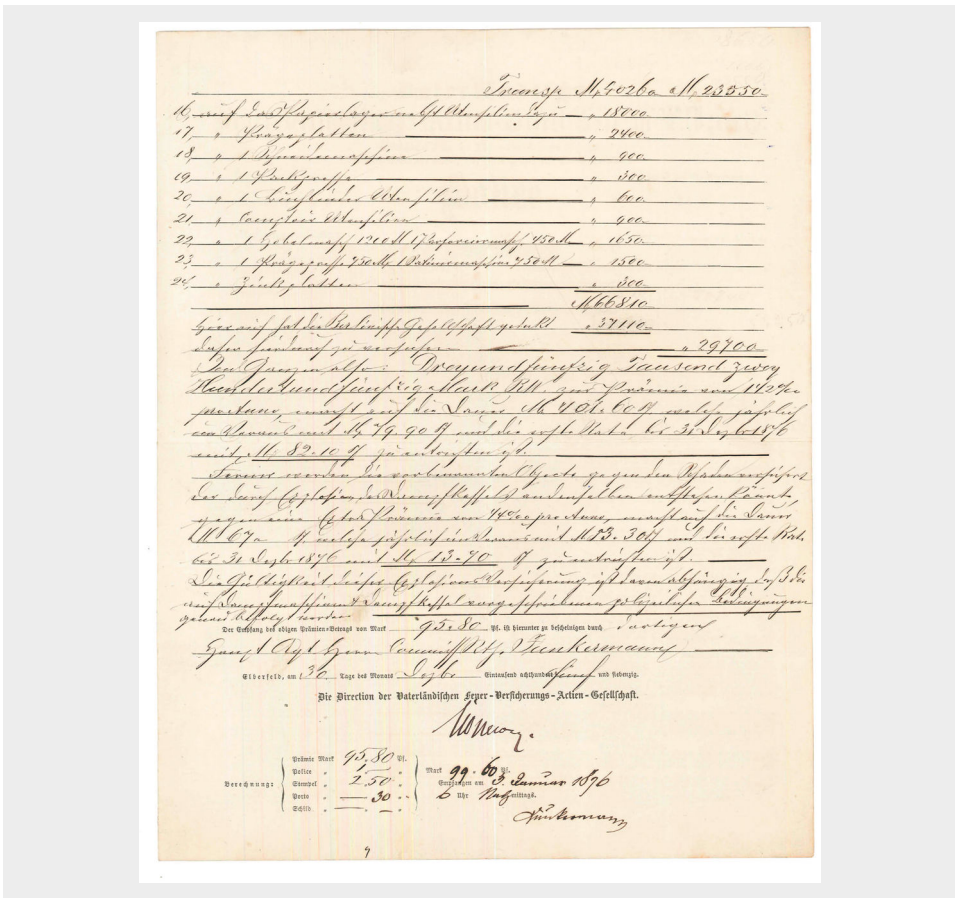 Transp M 40260 M 23550
16, auf das Papierlager nebst Utensilien dazu — " 18000
17, " Prägeplatten — " 2400
18, " 1 Schneidemaschine — " 900
19, " 1 Packpresse — " 300
20, " 1 Buchbinder Utensilien — " 600
21, " Comptoir Utensilien — " 900
22, " 1 Hobelmasch 1200 M 1 Perforiermasch. 450 M — " 1650
23, " 1 Prägepresse 750 M, 1 Satiniermaschine 750 M — " 1500
24, " Zinkplatten — " 300
M 66810
Hierauf hat die Berlinische Gesellschaft gedeckt " 37110
daher hierdurch zu versichern — " 29700
Im Ganzen also: Dreyundfünfzig Tausend zwey
Hundertundfünfzig Mark RM zur Prämie von 1 1/2 ‰
pro Anno, macht auf die Dauer M 401.60 welche jährlich
im Voraus mit M 79.90 und die erste Rate bis 31 Dezbr 1876
mit M 82.10 zu entrichten ist.
Ferner werden die vorbenannten Objecte gegen den Schaden versichert
der durch Explosion des Dampfkessels an denselben entstehen könnte
gegen eine Extra Prämie von 1/4 ‰ pro Anno, macht auf die Dauer
M 67 welche jährlich im Voraus mit M 13.30 und die erste Rate
bis 31 Dezbr 1876 mit M 13.70 zu entrichten ist.
Die Gültigkeit dieser Explosions Versicherung ist davon abhängig daß die
auf Dampfmaschine & Dampfkessel vorgeschriebenen polizeilichen Bedingungen
genau befolgt werden
Der Empfang des obigen Prämien-Betrags von Mark 95.80 Pf. ist hierunter zu bescheinigen durch dortigen
Haupt Agt. Herrn Commiss. Rth. Funkermann
Elberfeld, am 30 Tage des Monats Dezbr Eintausend achthundert fünf und siebenzig.
Die Direction der Vaterländischen Feuer-Versicherungs-Actien-Gesellschaft.
Berechnung:
Prämie Mark 95.80 Pf.
Police " 1 "
Stempel " 2.50 "
Porto " — 30 "
Schild " — "
Mark 99.60 Pf.
Empfangen am 3. Januar 1876
6 Uhr Nachmittags.
Funkermann